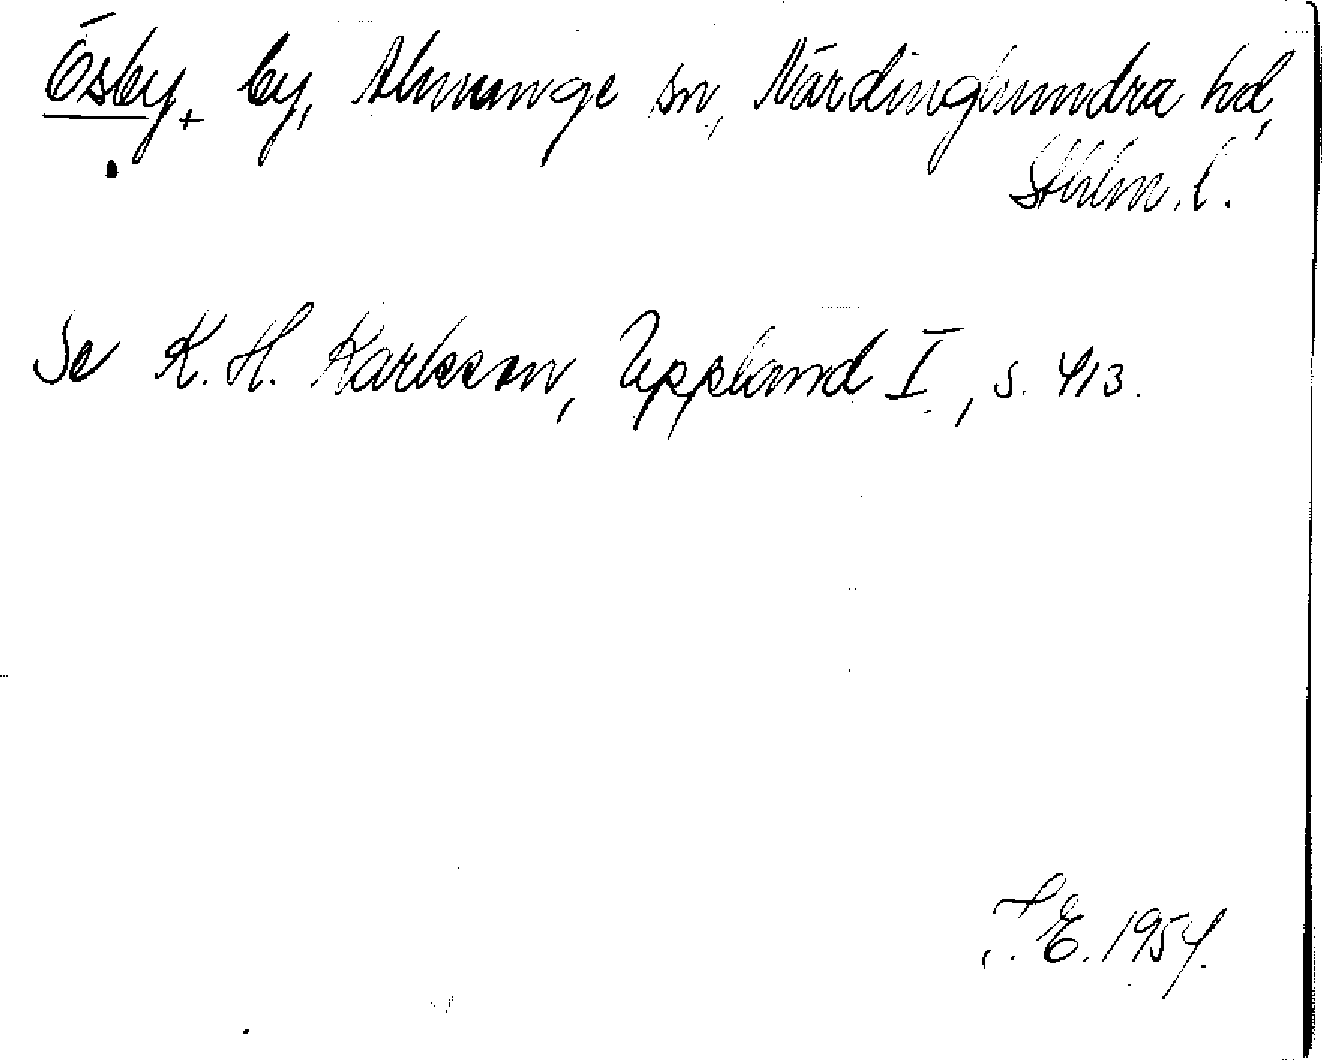 Ösby, by, Almunge sn, Närdinghundra hd,
Sthlm. l.
Se K. H. Karlsson, Uppland I, s. 413.
F. E. 1954.